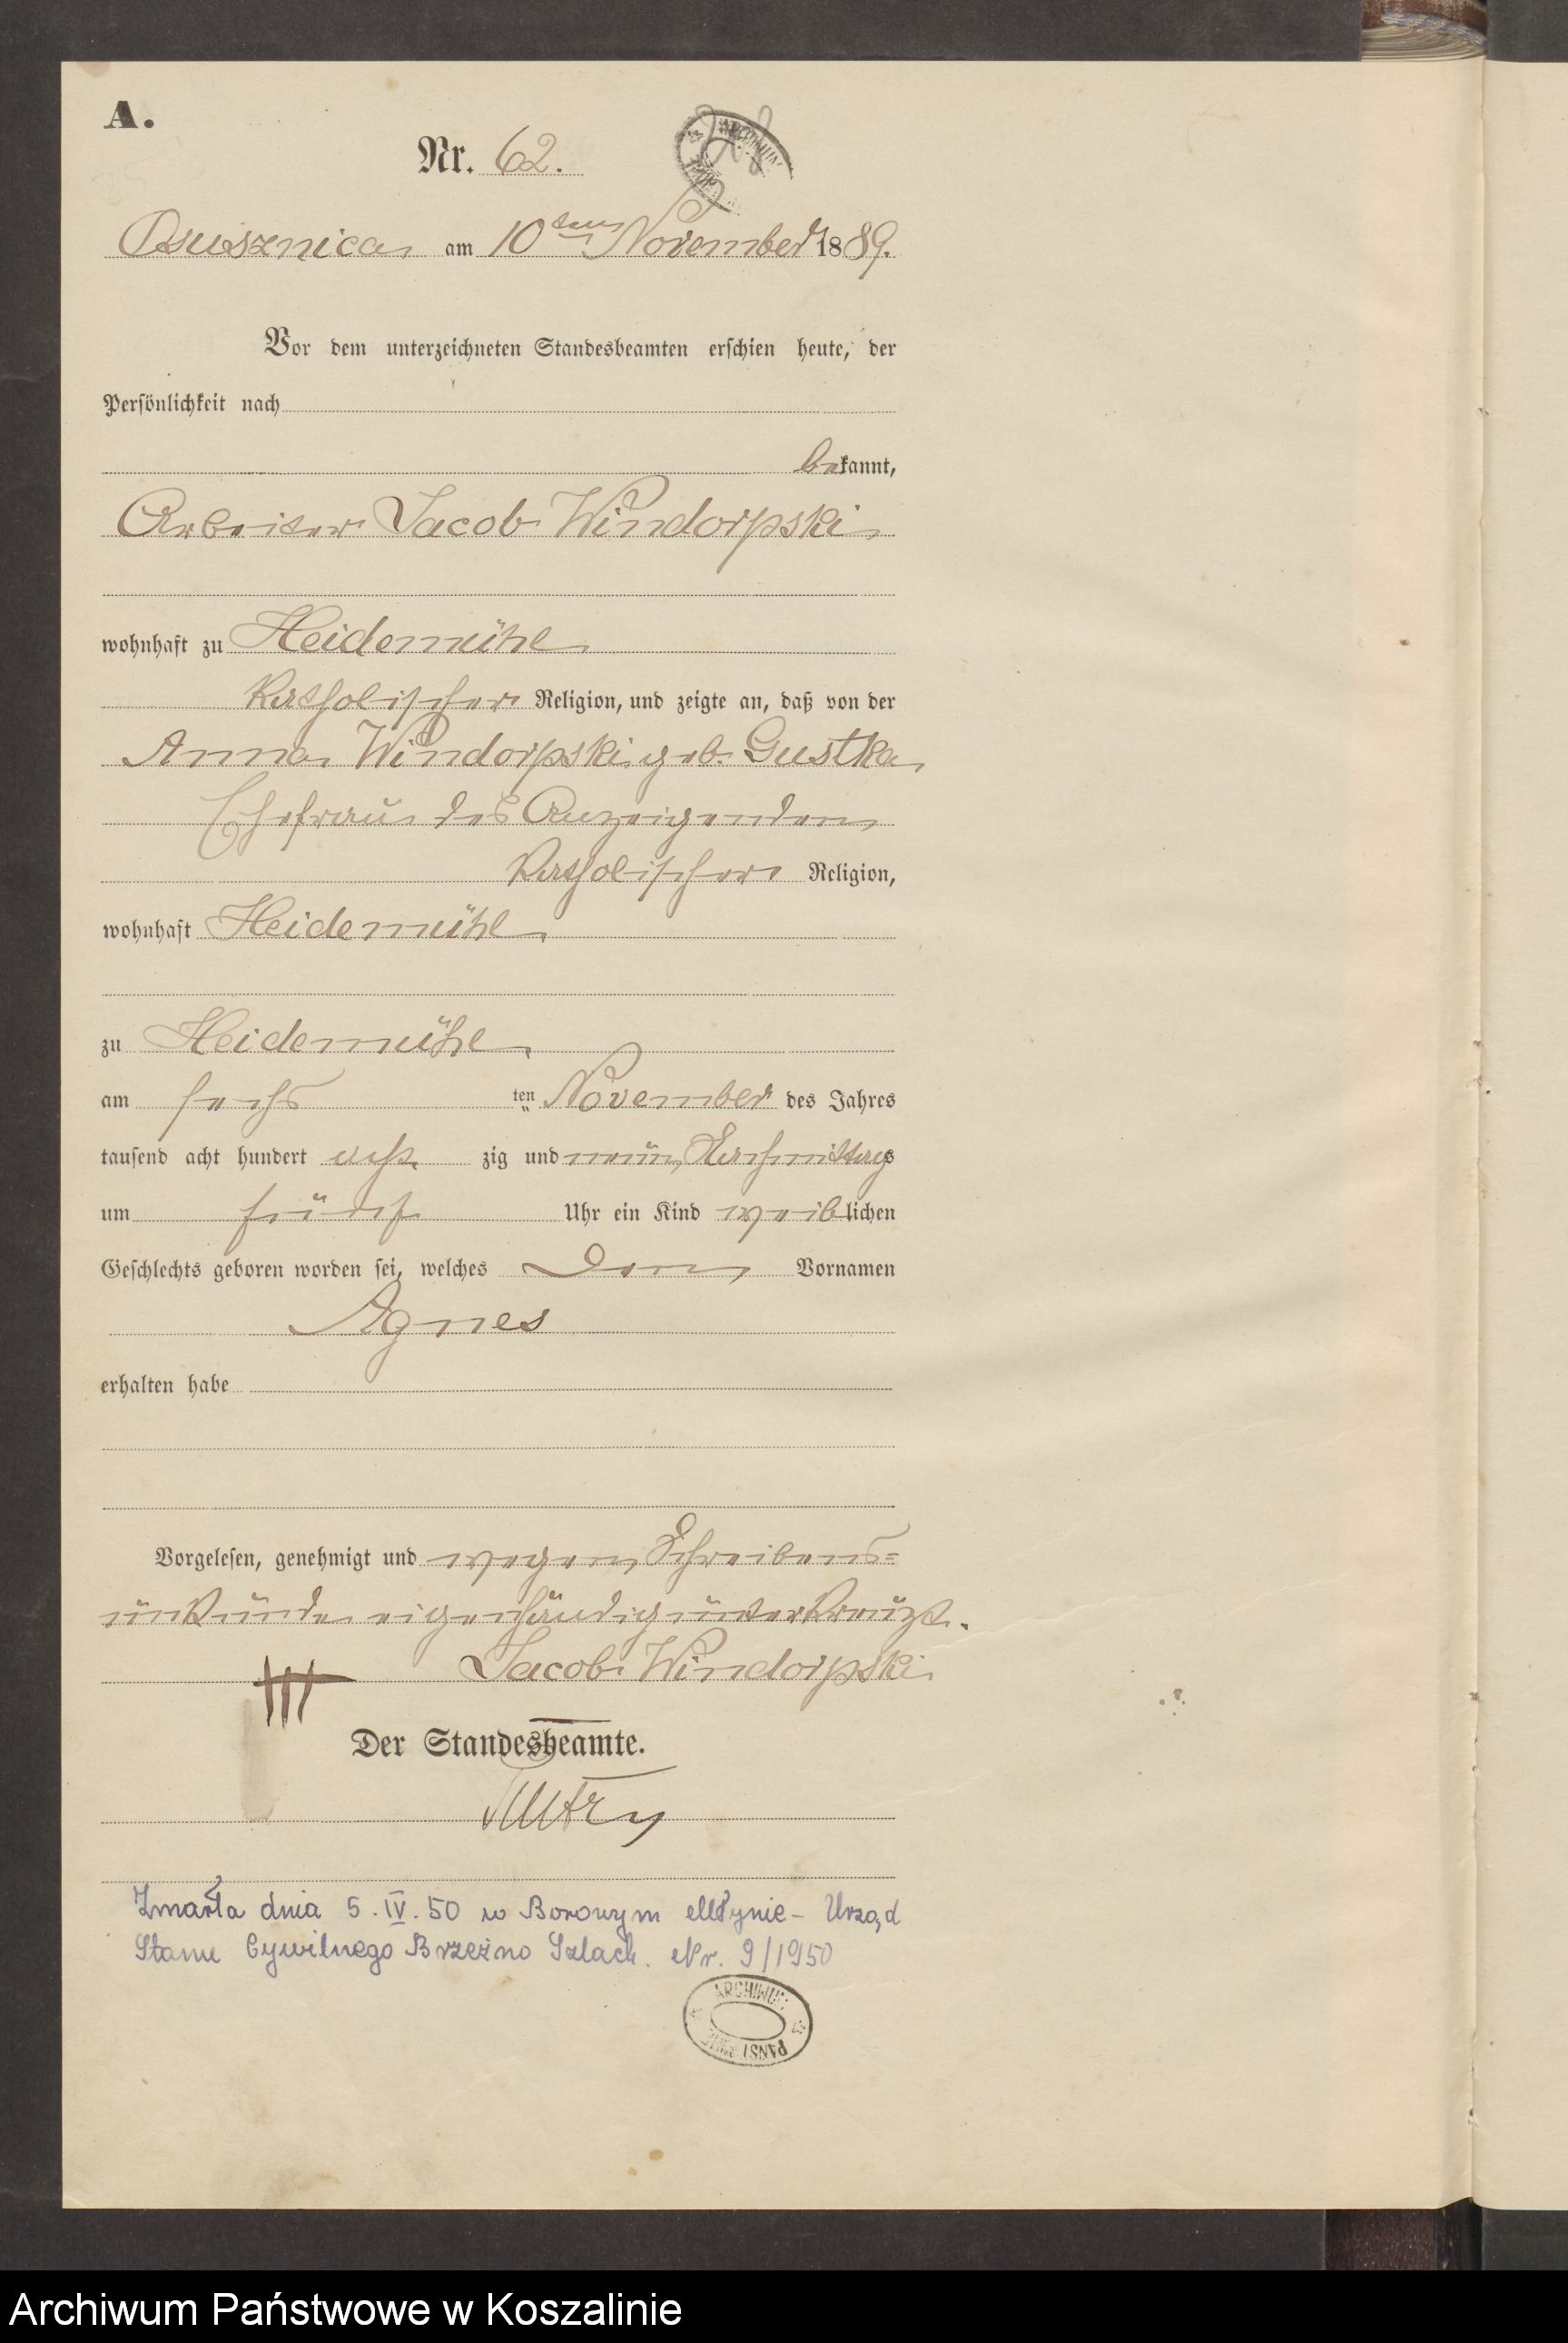 A.
Nr. 62.
Osusznica am 10ten November 1889.
Vor dem unterzeichneten Standesbeamten erschien heute, der
Persönlichkeit nach
bekannt,
Arbeiter Jacob Windorpski
wohnhaft zu Heidemühl
katholischer Religion, und zeigte an, daß von der
Anna Windorpski geb. Gustka
Ehefrau des Anzeigenden
katholischer Religion,
wohnhaft Heidemühl
zu Heidemühl
am sechsten November des Jahres
tausend acht hundert achtzig und neun, Nachmittags
um fünf Uhr ein Kind weiblichen
Geschlechts geboren worden sei, welches den Vornamen
Agnes
erhalten habe
Vorgelesen, genehmigt und wegen Schreibens-
unkunde eigenhändig unterkreuzt.
+++ Jacob Windorpski
Der Standesbeamte.
Zmarła dnia 5.IV.50 w Borowym Młynie - Urząd
Stanu Cywilnego Brzeźno Szlach. Nr. 9/1950
ARCHIWUM
Archiwum Państwowe w Koszalinie